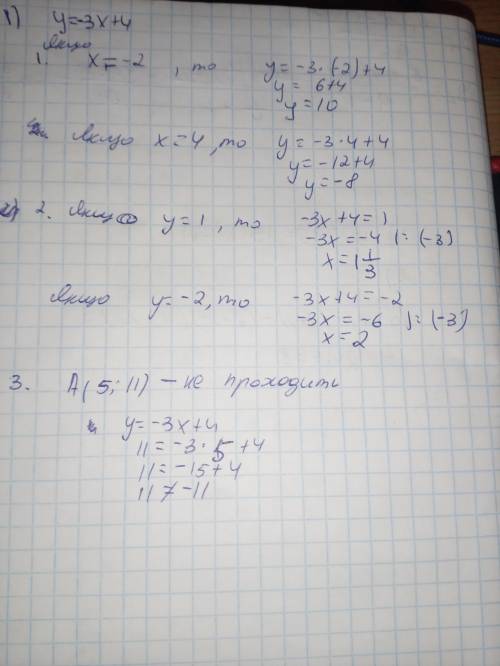 1) y=-3x+4
Якщо
1. x=-2, то y=-3·(-2)+4
y= 6+4
y=10
Якщо x=4, то y=-3·4+4
y=-12+4
y=-8
2. Якщо y=1, то -3x+4=1
-3x=-4 |:(-3)
x=1 1/3
Якщо y=-2, то -3x+4=-2
-3x=-6 |:(-3)
x=2
3. A(5;11) - не проходить
y=-3x+4
11=-3·5+4
11=-15+4
11≠-11